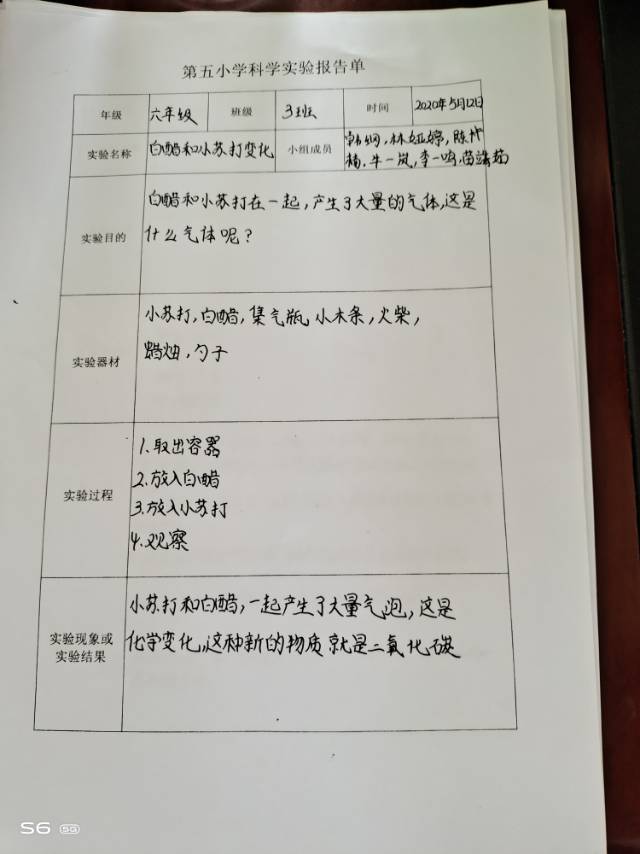 第五小学科学实验报告单
年级 六年级 班级 3班 时间 2020年5月12日
实验名称 白醋和小苏打变化 小组成员 林娅婷,
牛一岚,李一鸣,
实验目的
白醋和小苏打在一起,产生了大量的气体,这是
什么气体呢?
实验器材
小苏打,白醋,集气瓶,小木条,火柴,
蜡烛,勺子
实验过程
1.取出容器
2.放入白醋
3.放入小苏打
4.观察
实验现象或
实验结果
小苏打和白醋,一起产生了大量气泡,这是
化学变化,这种新的物质就是二氧化碳
S6 5G